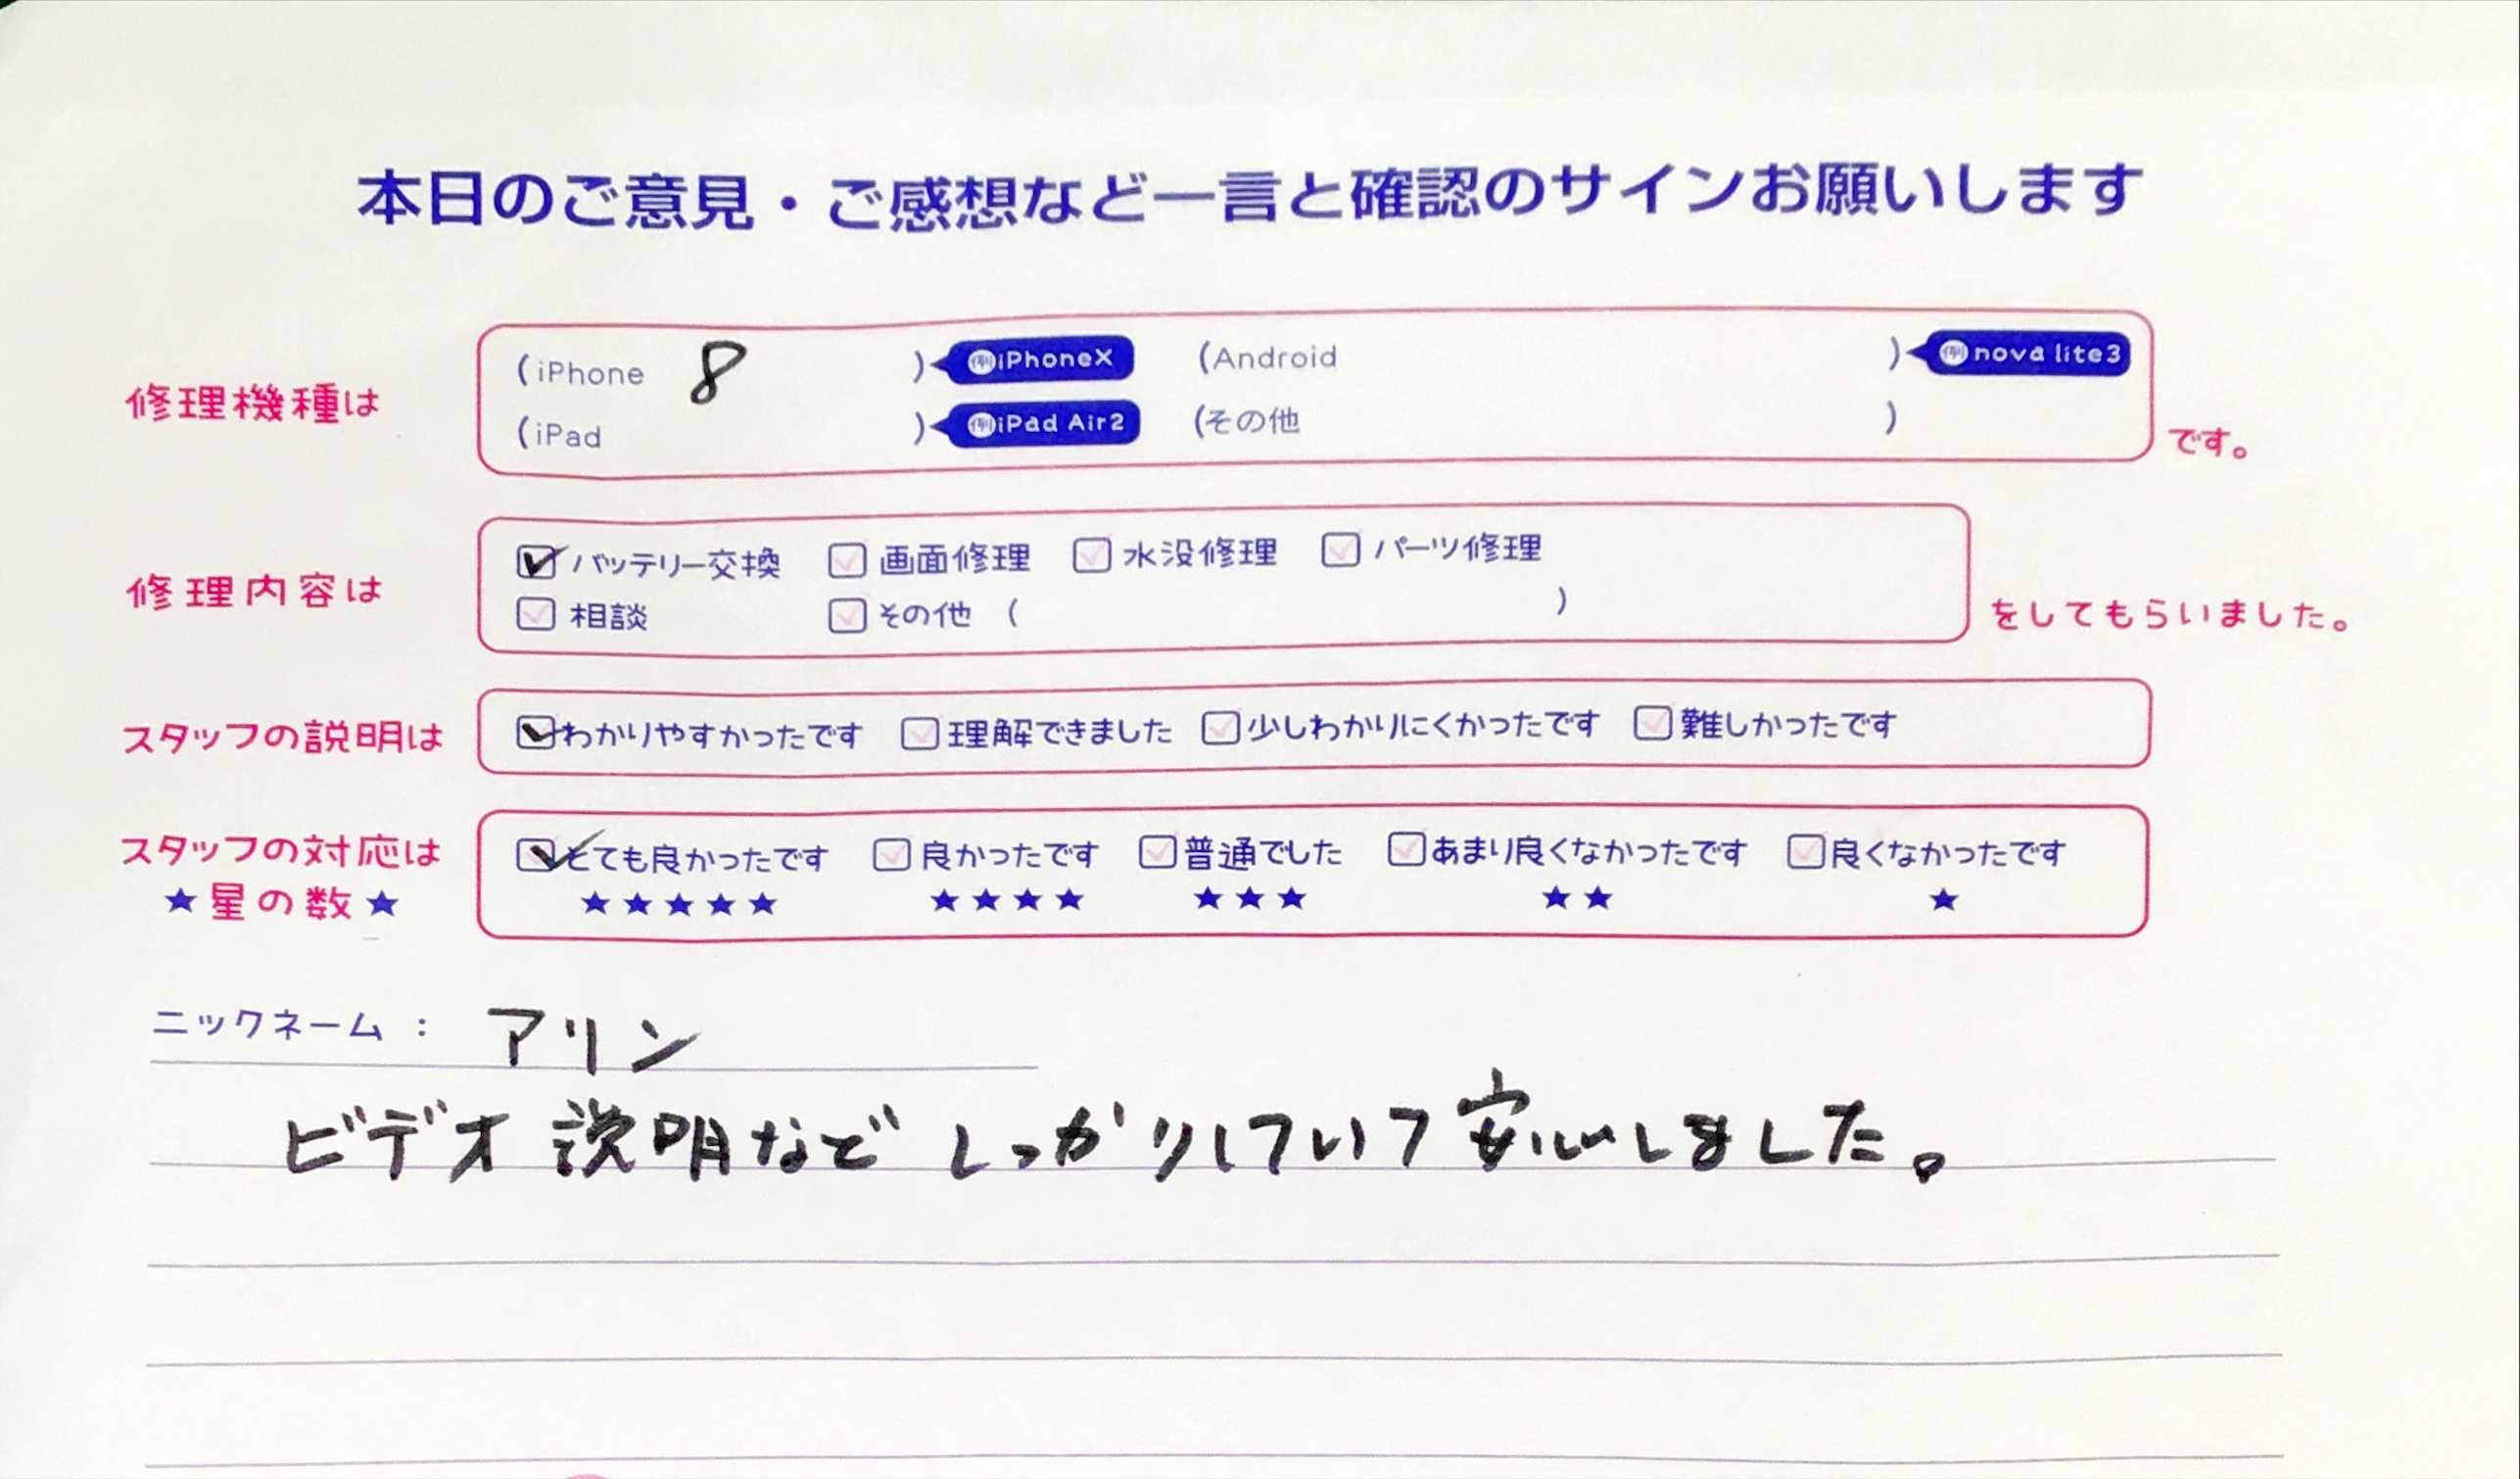 本日のご意見・ご感想など一言と確認のサインお願いします
修理機種は (iPhone 8 ) 例iPhoneX (Android ) 例nova lite3
(iPad ) 例iPad Air2 (その他 ) です。
修理内容は バッテリー交換 画面修理 水没修理 パーツ修理
相談 その他 ( ) をしてもらいました。
スタッフの説明は わかりやすかったです 理解できました 少しわかりにくかったです 難しかったです
スタッフの対応は とても良かったです 良かったです 普通でした あまり良くなかったです 良くなかったです
★星の数★ ★★★★★ ★★★★ ★★★ ★★ ★
ニックネーム : アリン
ビデオ説明など しっかりしていて安心しました。